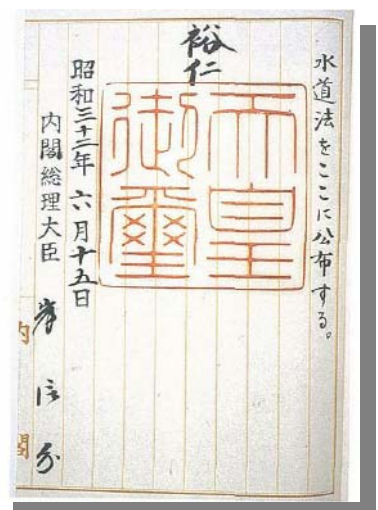 水道法をここに公布する。
裕仁
天皇
御璽
昭和三十二年六月十五日
内閣総理大臣 岸信介
内閣